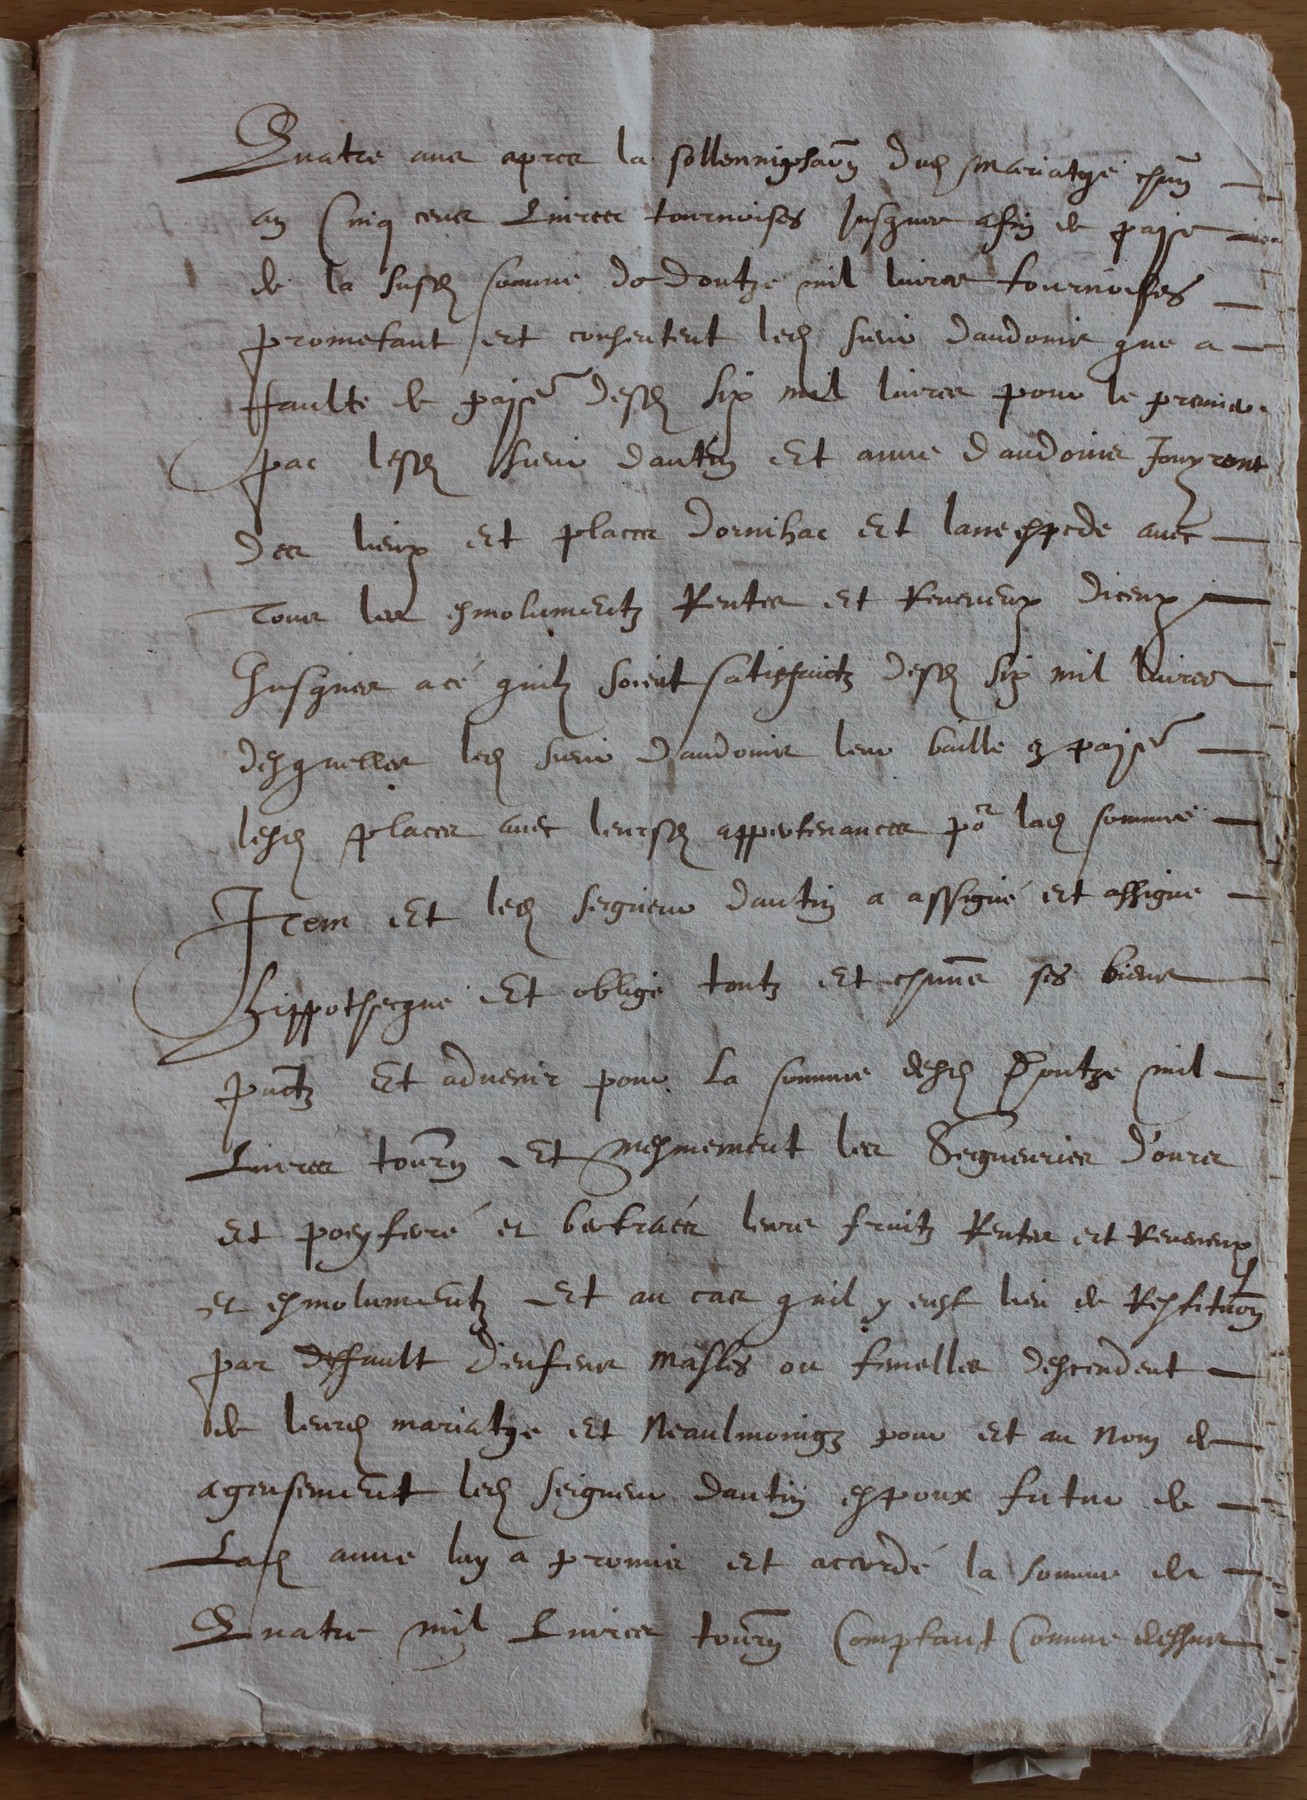 Quatre ans apres la sollennisaon dud mariatge chun
an Cinq cens Livres tournoises Jusques a fin de paye
de la susd somme de doutze mil livres tournoises
prometant et consentent led sieur dandoins que a
ffaulte de paijet desd six mil livres pour le premier
pac lesd sieur dantin Et anne dandoins Jouyront
des lieux et places dornihac et lanespede avec
Tous les esmolumentz Rentes et Reveneux diceux
Jusques a cé quilz soient satisfaictz desd six mil livres
desquelles led sieur dandoins leur baille en paijet
lesd places avec leursd appertenances por lad somme
Item Et led seigneur dantin a assigné et assigne
hippotheque Et obligé toutz et chuns ses biens
pntz Et advenir pour La somme desd Doutze mil
Livres tourn Et mesmement les Seigneuries d'ours
et poeyferré et bertraés leurs fruitz Rentes et Reveneux
et esmolumentz Et au cas quil y eust lieu de Restituon
par deffault d'enfens masles ou femelles descendent
de leurd mariatge et Neaulmoingz pour et au nom de
agensement led seigneur dantin espoux futur de
Lad anne luy a promis et accordé la somme de
Quatre mil Livres tourn Comptant Comme dessus